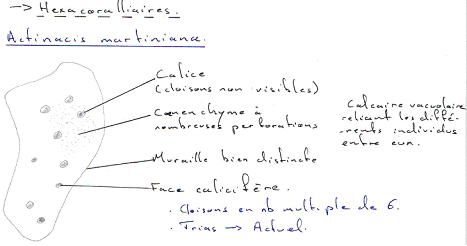 -> Hexacoralliaires.
Actinacis martiniana.
Calice
(cloisons non visibles)
Cœnenchyme à
nombreuses perforations
Calcaire vacuolaire
reliant les diffé-
-rents individus
entre eux.
Muraille bien distincte
Face calicifère.
. Cloisons en nb multiple de 6.
. Trias -> Actuel.